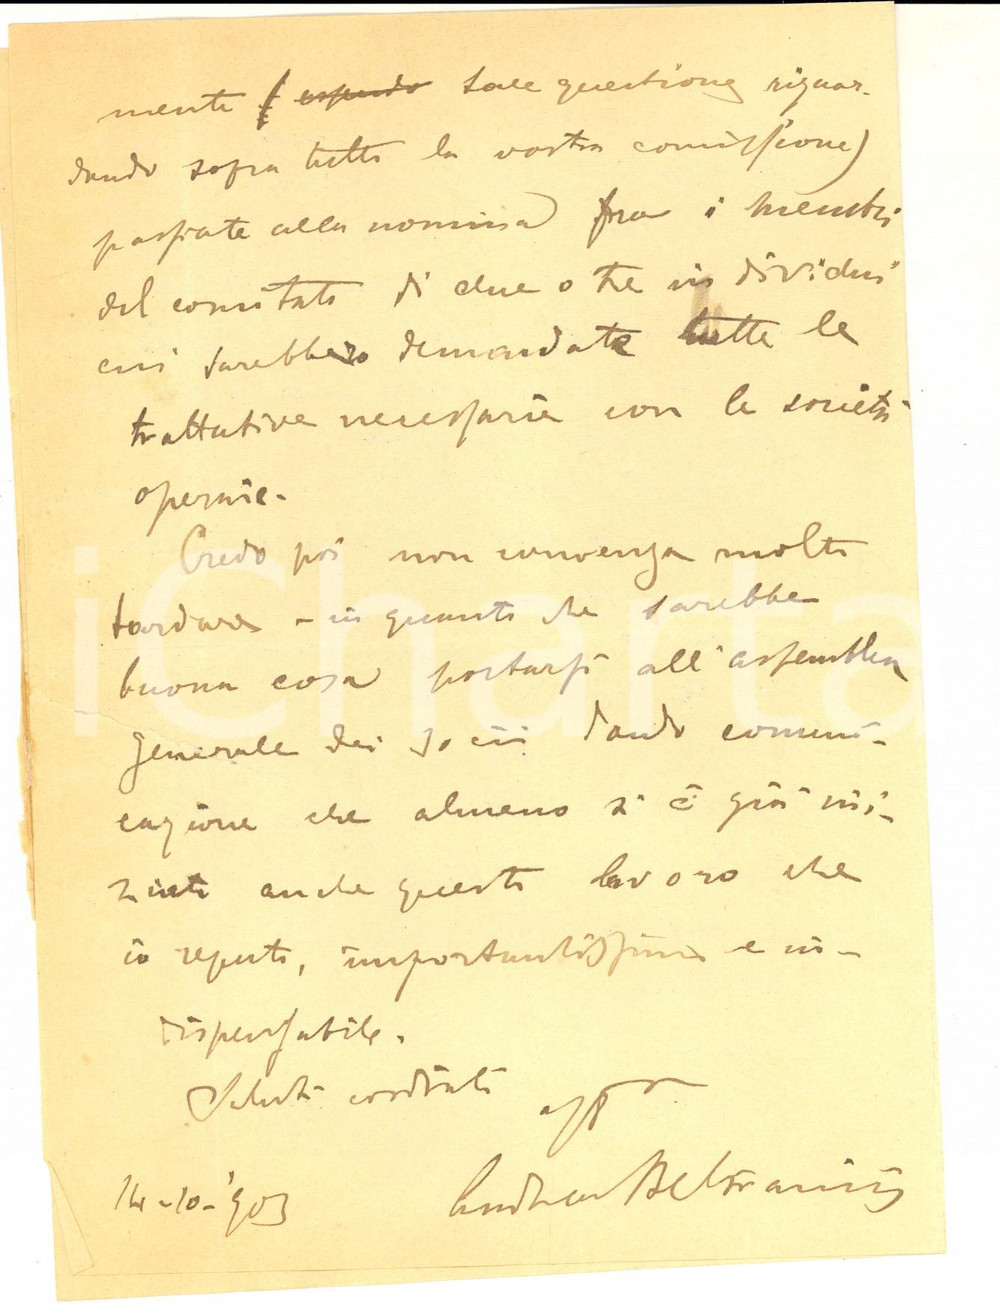 mente ( essendo tale questione riguar-
dando sopra tutto la vostra comissione)
passiate alla nomina fra i membri
del comitato di due o tre individui
cui sarebbero demandate tutte le
trattative necessarie con le società
operaie.
Credo poi non convenga molto
tardare - in quanto che sarebbe
buona cosa portarsi all'assemblea
generale dei socii dando comuni-
cazione che almeno si è già ini-
ziato anche questo lavoro che
io reputo, importantissimo e in-
dispensabile.
Saluti cordiali
aff
Andrea Beltramini
14-10-'903
iCharta